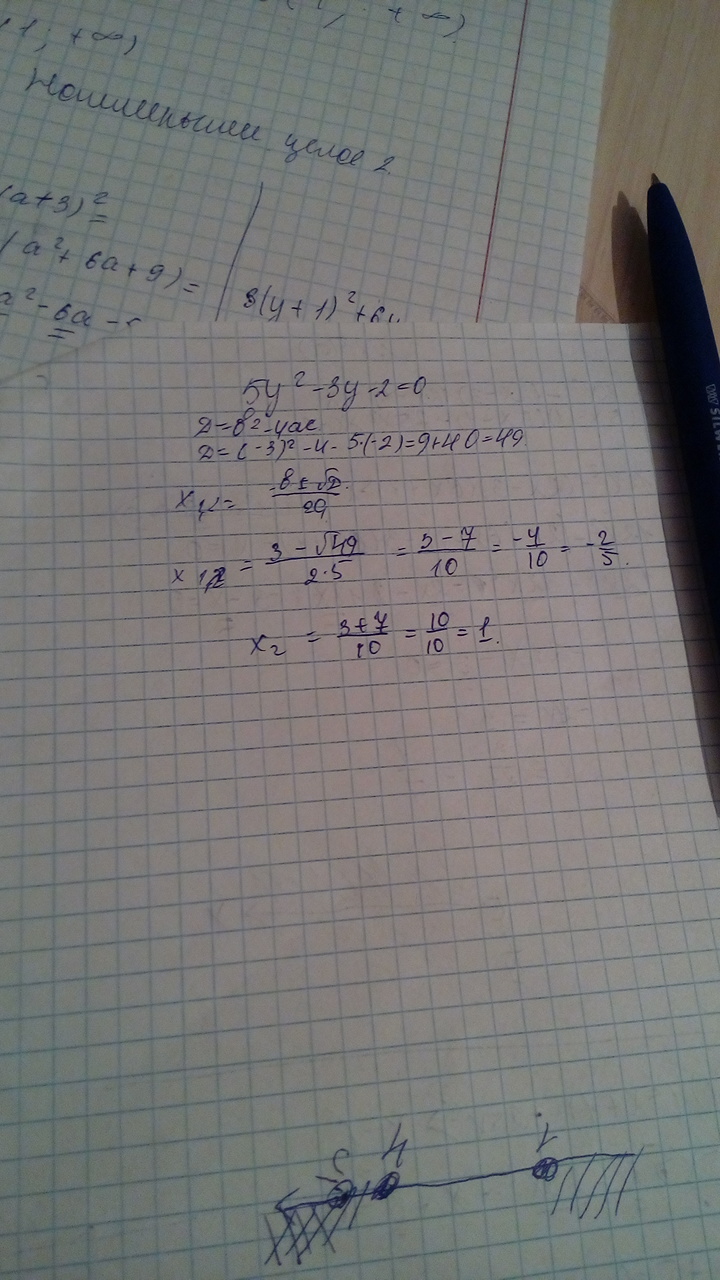 ; +∞)
1; +∞)
Наименьшее целое 2
(a+3)² =
(a²+6a+9)=
a²-6a-
8(y+1)²+6y
5y²-3y-2=0
D=b²-4ac
D=(-3)²-4·5·(-2)=9+40=49
x₁,₂= -b±√D / 2a
x₁ = 3-√49 / 2·5 = 3-7 / 10 = -4/10 = -2/5.
x₂ = 3+7 / 10 = 10/10 = 1.
4 1